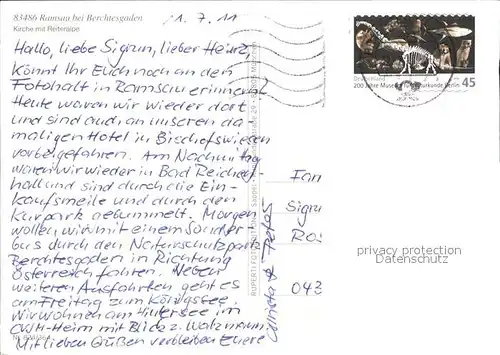 83486 Ramsau bei Berchtesgaden
Kirche mit Reiteralpe
1.7.11
Hallo, liebe Sigrun, lieber Heinz,
könnt Ihr Euch noch an den
Fotohalt in Ramsau erinnern?
Heute waren wir wieder dort
und sind auch an unseren da-
maligen Hotel in Bischofswiesen
vorbeigefahren. Am Nachmittag
waren wir wieder in Bad Reichen-
hall und sind durch die Ein-
kaufsmeile und durch den
Kurpark gebummelt. Morgen
wollen wir mit einem Sonder-
bus durch den Naturschutzpark
Berchtesgaden in Richtung
Österreich fahren. Neben
weiteren Ausfahrten geht es
am Freitag zum Königssee.
Wir wohnen am Hintersee im
CVJM-Heim mit Blick z. Watzmann.
Mit lieben Grüßen verbleiben Euere
Christa & Peter
Deutschland
200 Jahre Museum für Naturkunde Berlin
45
Fam
Sigru
Ros
043
privacy protection
Datenschutz